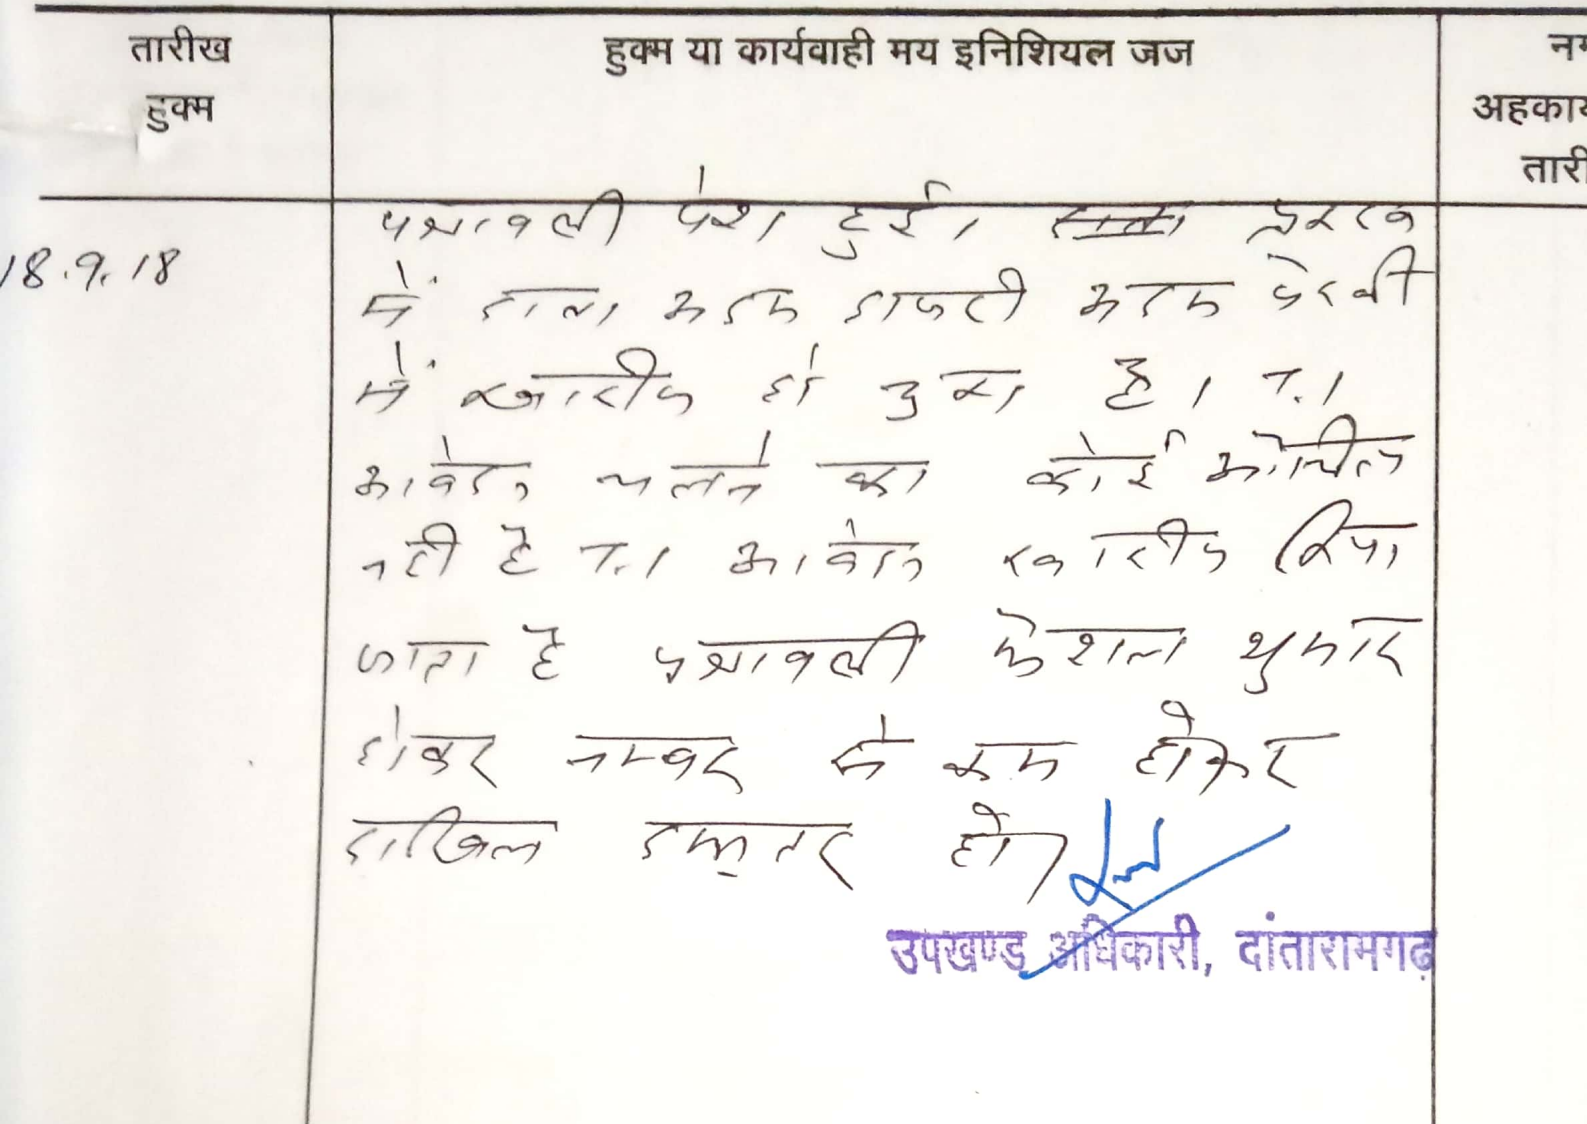 तारीख
हुक्म
हुक्म या कार्यवाही मय इनिशियल जज
अहकाम
तारी
18.9.18
पत्रावली पेश हुई।
में दावा अदम हाजरी अदम पेरवी
में खारीज हो चुका है। T.I
आवेदन चलने का कोई ओचित्य
नही है T.I आवेदन खारीज किया
जाता है पत्रावली फेशल शुमार
होकर नम्बर से कम होकर
दाखिल दफ्तर हो।
उपखण्ड अधिकारी, दांतारामगढ़